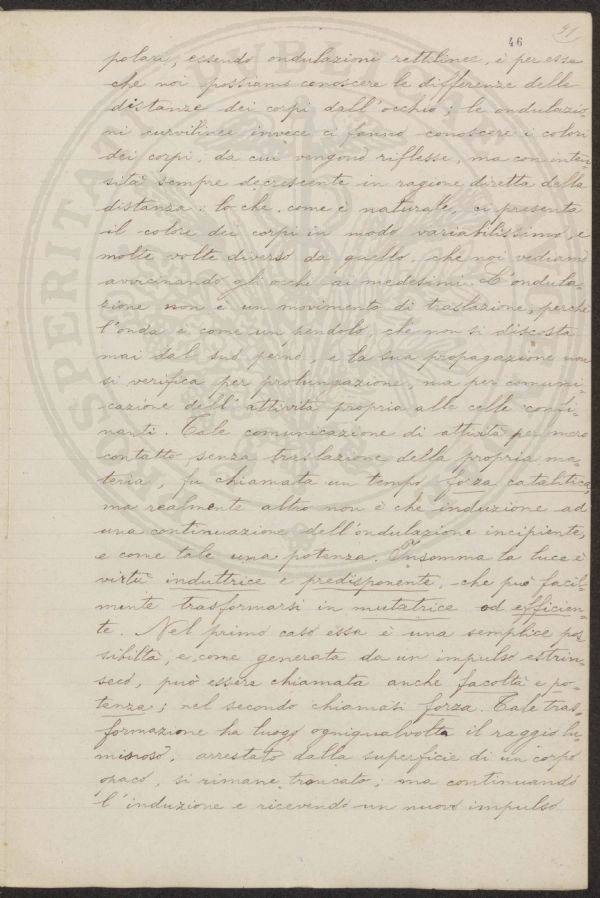 46 41
polari, essendo ondulazioni rettilinee, è per esse
che noi possiamo conoscere le differenze delle
distanze dei corpi dall'occhio; le ondulazio-
ni curvilinee invece ci fanno conoscere i colori
dei corpi, da cui vengono riflesse, ma con inten-
sità sempre decrescente in ragione diretta della
distanza: lo che, come è naturale, ci presenta
il colore dei corpi in modo variabilissimo, e
molte volte diverso da quello, che noi vediamo
avvicinando gli occhi ai medesimi. L'ondula-
zione non è un movimento di traslazione, perchè
l'onda è come un pendolo, che non si discosta
mai dal suo perno, e la sua propagazione non
si verifica per prolungazione, ma per comuni-
cazione dell'attività propria alle celle confi-
nanti. Tale comunicazione di attività per mero
contatto senza traslazione della propria ma-
teria, fu chiamata un tempo forza catalitica,
ma realmente altro non è che induzione ad
una continuazione dell'ondulazione incipiente,
e come tale una potenza. Insomma la luce è
virtù induttrice e predisponente, che può facil-
mente trasformarsi in mutatrice ed efficien-
te. Nel primo caso essa è una semplice pos
sibiltà, e, come generata da un impulso estrin-
seco, può essere chiamata anche facoltà e po-
tenza; nel secondo chiamasi forza. Tale tras-
formazione ha luogo ogniqualvolta il raggio lu-
minoso, arrestato dalla superficie di un corpo
opaco, si rimane troncato; ma continuando
l'induzione e ricevendo un nuovo impulso